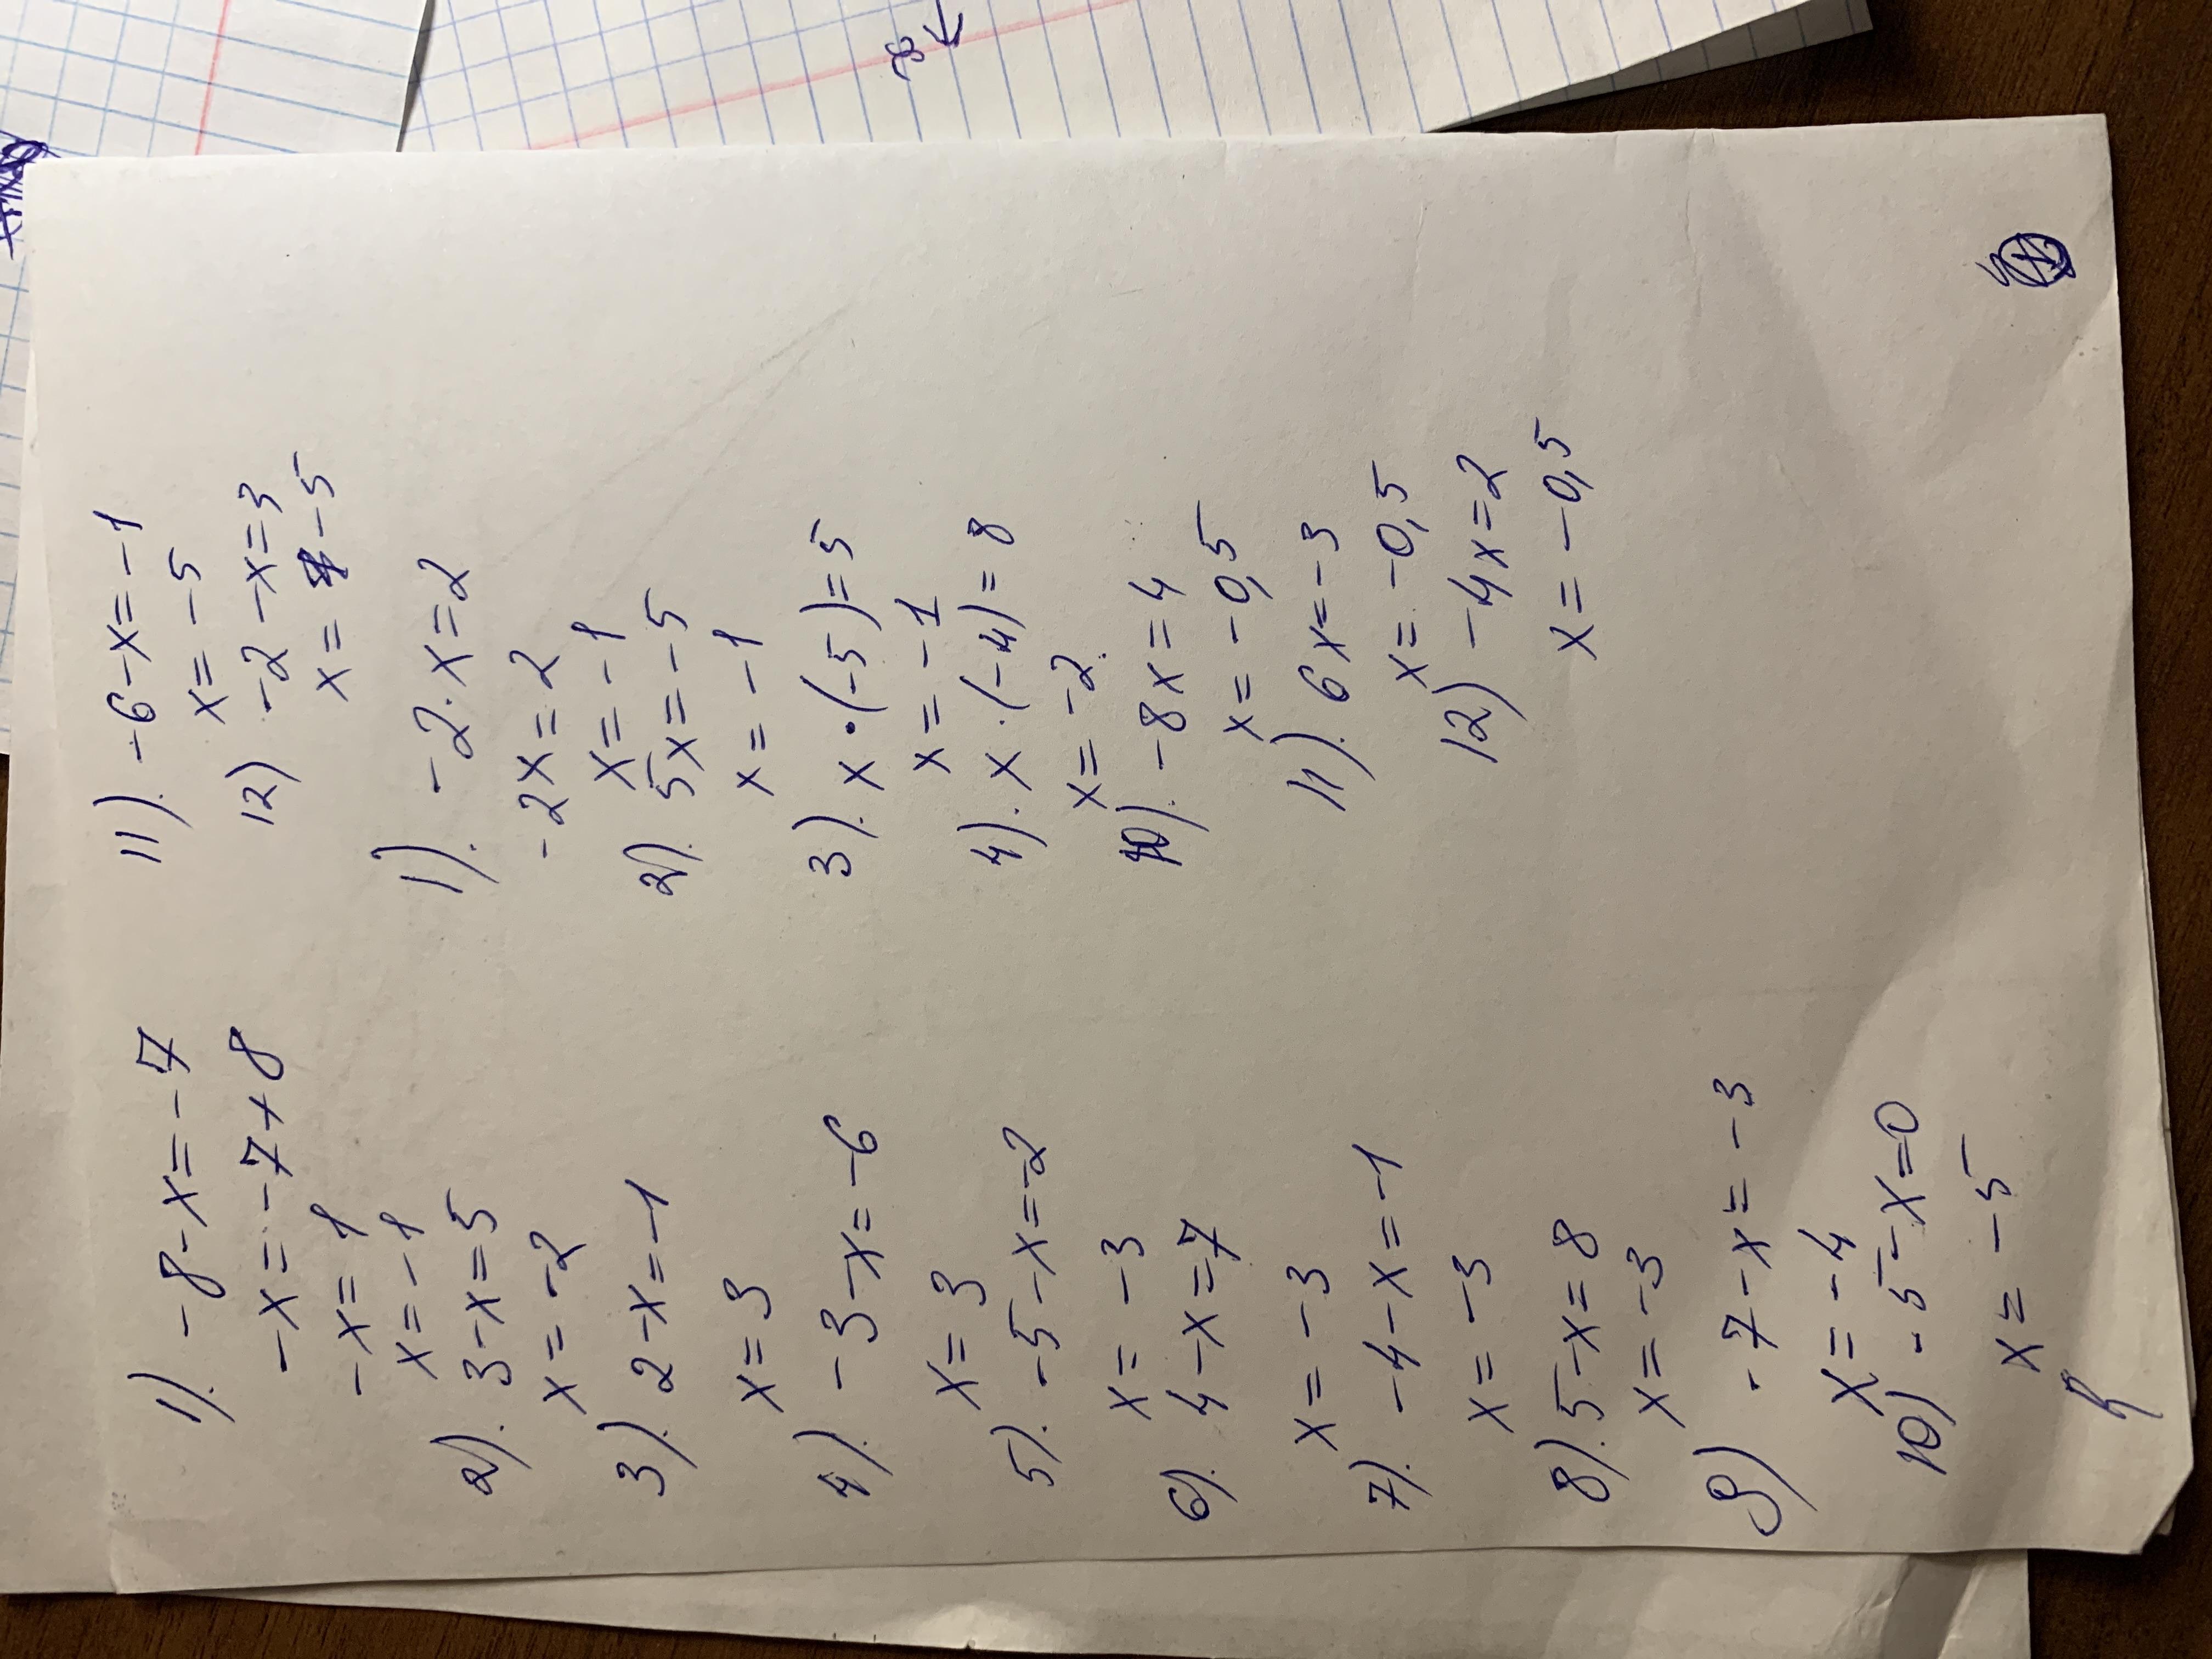 1). -8-x=-7
-x=-7+8
-x=1
x=-1
2). 3-x=5
x=-2
3). 2-x=-1
x=3
4). -3-x=-6
x=3
5). -5-x=-2
x=-3
6). 4-x=7
x=-3
7). -4-x=-1
x=-3
8). 5-x=8
x=-3
9) -7-x=-3
x=-4
10) -5-x=0
x=-5
11). -6-x=-1
x=-5
12) -2-x=3
x=-5
1). -2·x=2
-2x=2
x=-1
2). 5x=-5
x=-1
3). x·(-5)=5
x=-1
4). x·(-4)=8
x=-2
10). -8x=4
x=-0,5
11). 6x=-3
x=-0,5
12) -4x=2
x=-0,5